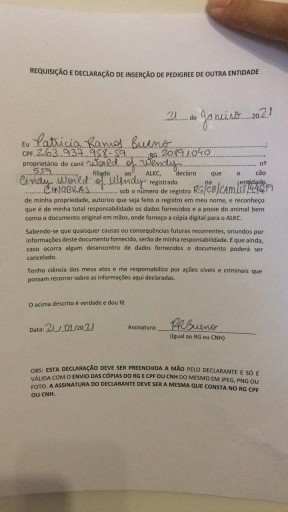 REQUISIÇÃO E DECLARAÇÃO DE INSERÇÃO DE PEDIGREE DE OUTRA ENTIDADE
21 de Janeiro 2021
Eu Patricia Ramos Bueno
CPF 263.937.958-59 RG 20191040
proprietário do canil World of Wendy nº
559 filiado ao ALKC, declaro que o cão
Cindy World of Wendy registrado na entidade
CINOBRAS sob o número de registro RG/CB/CAM
de minha propriedade, autorizo que seja feito o registro em meu nome, e reconheço
que é de minha total responsabilidade os dados fornecidos e a posse do animal bem
como o documento original em mãos, onde forneço a cópia digital para o ALKC.
Sabendo-se que qualquer causas ou consequências futuras recorrentes, oriundos por
informações deste documento fornecido, serão de minha responsabilidade. E que ainda,
caso ocorra algum desencontro de dados fornecidos o documento poderá ser
cancelado.
Tenho ciência dos meus atos e me responsabilizo por ações cíveis e criminais que
possam recorrer sobre as informações aqui declaradas.
O acima descrito é verdade e dou fé
Data: 21/01/2021 Assinatura: PRBueno
(Igual ao RG ou CNH)
OBS: ESTA DECLARAÇÃO DEVE SER PREENCHIDA A MÃO PELO DECLARANTE E SÓ É
VÁLIDA COM O ENVIO DAS CÓPIAS DO RG E CPF OU CNH DO MESMO EM JPEG, PNG OU
FOTO. A ASSINATURA DO DECLARANTE DEVE SER A MESMA QUE CONSTA NO RG CPF
OU CNH.